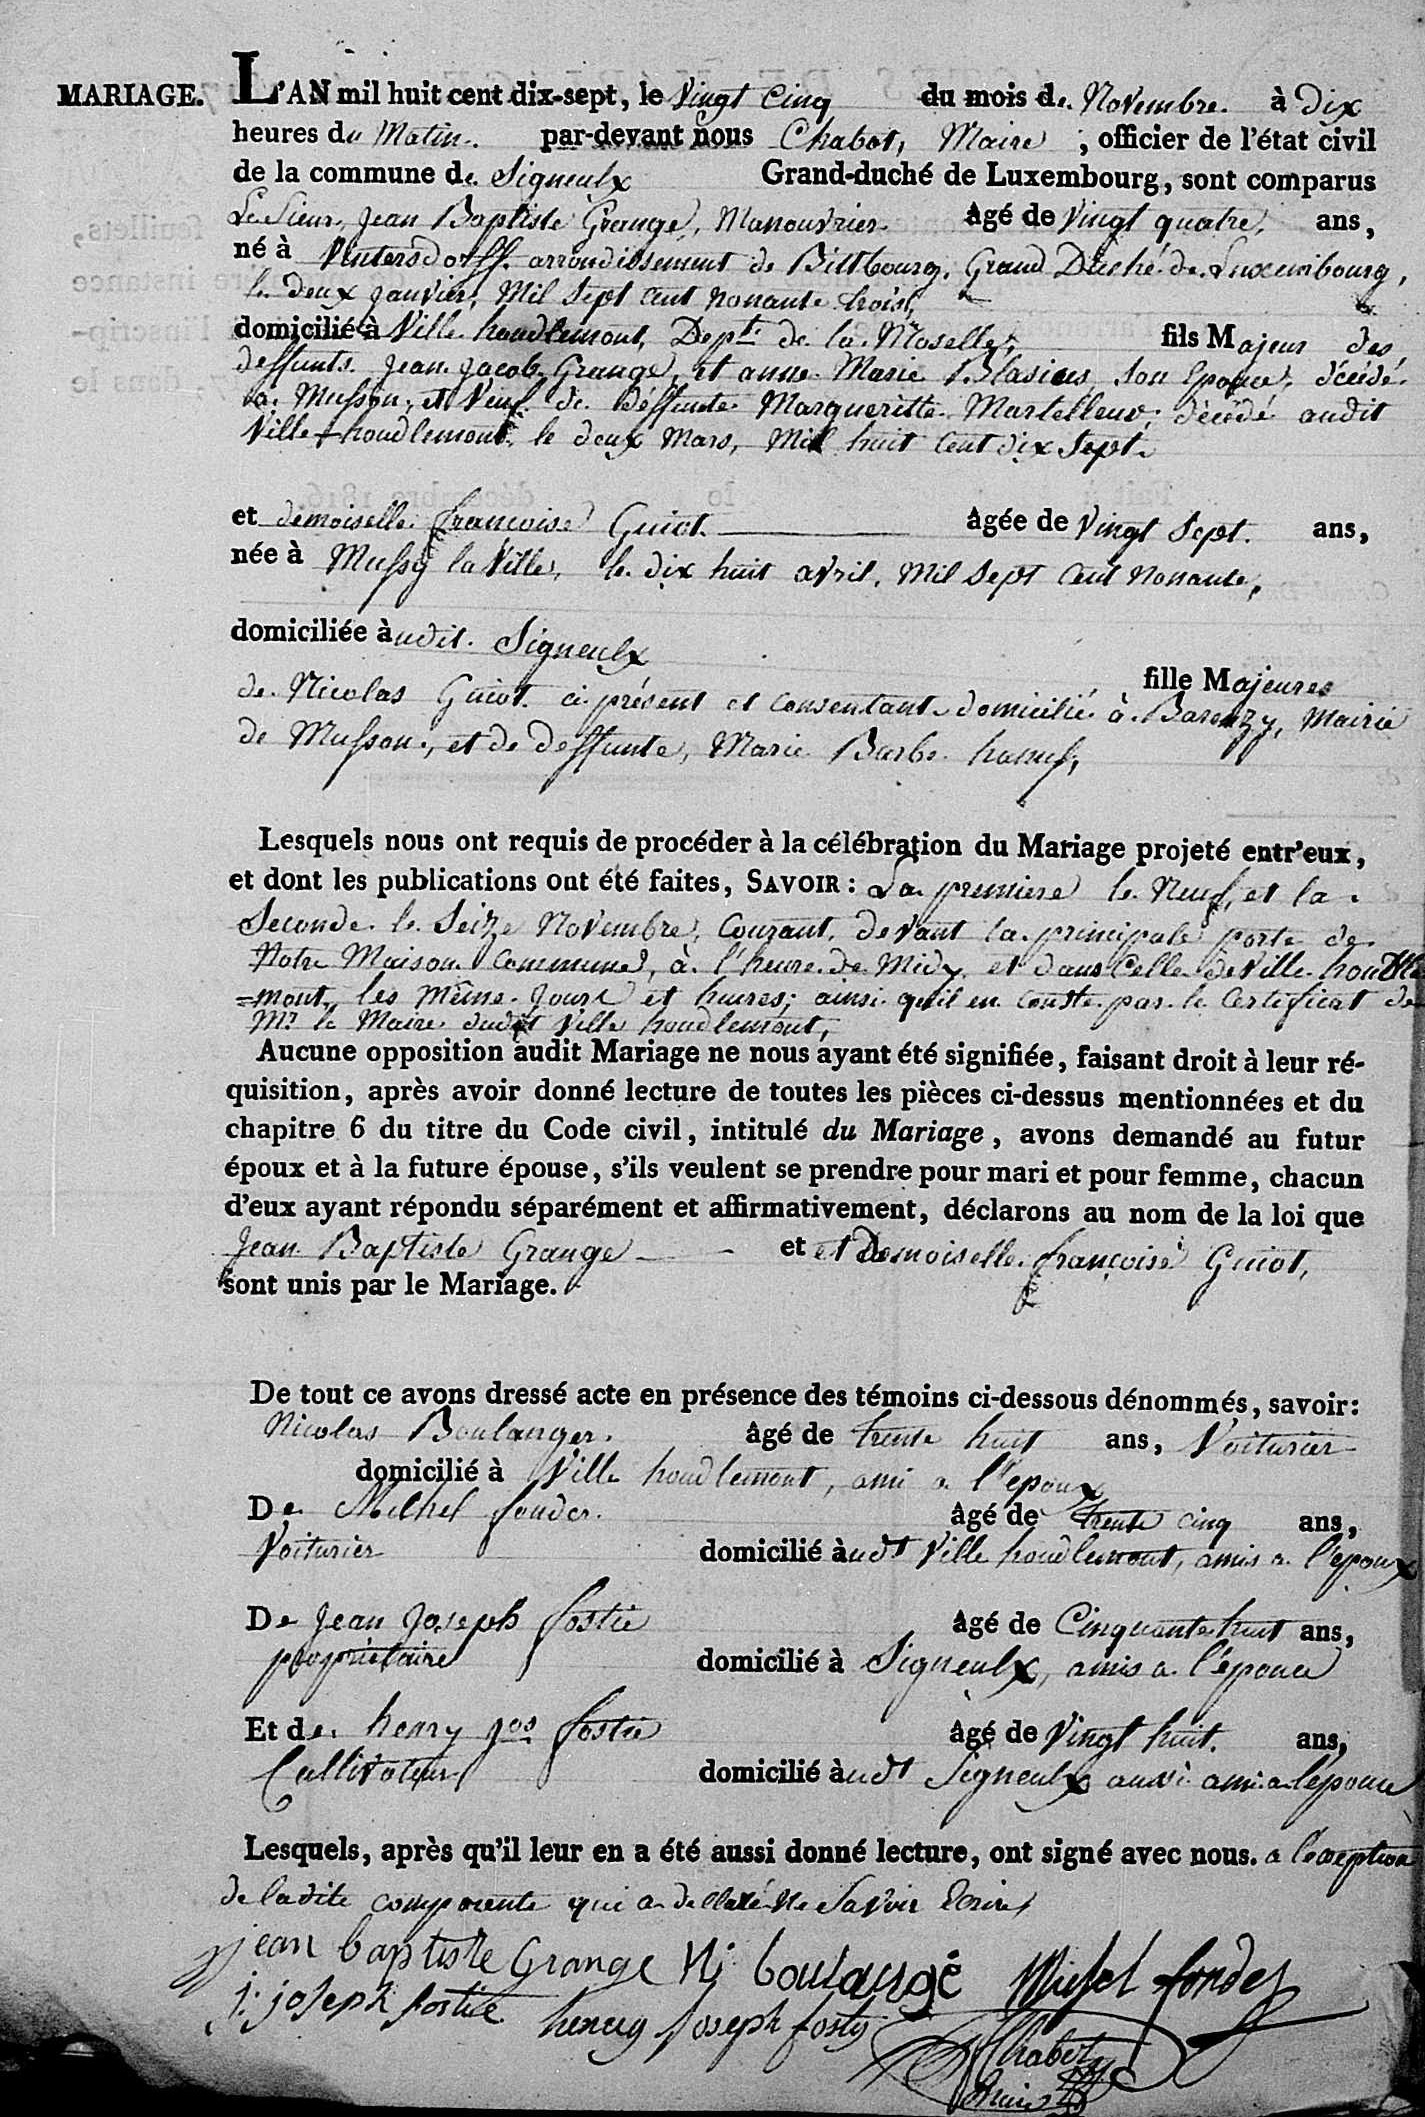 MARIAGE. L'AN mil huit cent dix-sept, le Vingt Cinq du mois de Novembre. à dix
heures du Matin. par-devant nous Chabot, Maire ; officier de l'état civil
de la commune de Signeulx Grand-duché de Luxembourg, sont comparus
Le Sieur, Jean Baptiste Grange, Manouvrier. âgé de Vingt quatre, ans,
né à Vintersdorff. arrondissement de Bittbourg, Grand Duché de Luxembourg,
le deux janvier, Mil Sept Cent nonante trois,
domicilié à Ville houdlemont, Dept. de la Moselle, fils Majeur des
deffunts Jean Jacob Grange, et anne Marie Blasius son Epouse, décédé
a Musson, et Veuf de Déffunte Margueritte Martelleur, décédé audit
Ville-houdlemont, le deux Mars, Mil huit Cent dix Sept.
et demoiselle françoise Guiot. âgée de Vingt Sept. ans,
née à Mussy la Ville, le dix huit avril, Mil Sept Cent Nonante,
domiciliée àudit. Signeulx
fille Majeures
de Nicolas Guiot. ci présent et Consentant domicilié à Baranzy, Mairie
de Musson, et de deffunte, Marie Barbe
Lesquels nous ont requis de procéder à la célébration du Mariage projeté entr'eux,
et dont les publications ont été faites, SAVOIR : La premiere le Neuf, et la
Seconde le Seize Novembre, Courant, devant la principale porte de
Notre Maison Commune, à l'heure de Midy, et dans Celle de Ville houdle
=mont, les même Jours et heures; ainsi qu'il en Conste par le Certificat de
Mr le Maire dudit Ville houdlemont,
Aucune opposition audit Mariage ne nous ayant été signifiée, faisant droit à leur ré-
quisition, après avoir donné lecture de toutes les pièces ci-dessus mentionnées et du
chapitre 6 du titre du Code civil, intitulé du Mariage, avons demandé au futur
époux et à la future épouse, s'ils veulent se prendre pour mari et pour femme, chacun
d'eux ayant répondu séparément et affirmativement, déclarons au nom de la loi que
Jean Baptiste Grange et et Demoiselle françoise Guiot,
sont unis par le Mariage.
De tout ce avons dressé acte en présence des témoins ci-dessous dénommés, savoir:
Nicolas Boulanger. âgé de trente huit ans, Voiturier
domicilié à Ville houdlemont, ami a l'epoux
De Michel fonder. âgé de trente cinq ans,
Voiturier domicilié àudt Ville houdlemont, amis a l'epoux
De Jean Joseph fostié âgé de Cinquante huit ans,
propriétaire domicilié à Signeulx, amis a l'épouce
Et de henry jos fostié âgé de Vingt huit. ans,
Cultivateur domicilié àudt Signeulx aussi ami a l'epouce
Lesquels, après qu'il leur en a été aussi donné lecture, ont signé avec nous. a l'exeption
de ladite comparente qui a dellaré ne Savoir Ecrire,
jean baptiste Grange Ni boulangé Michel fonder
j: joseph fostié henry joseph fosty
Chabot